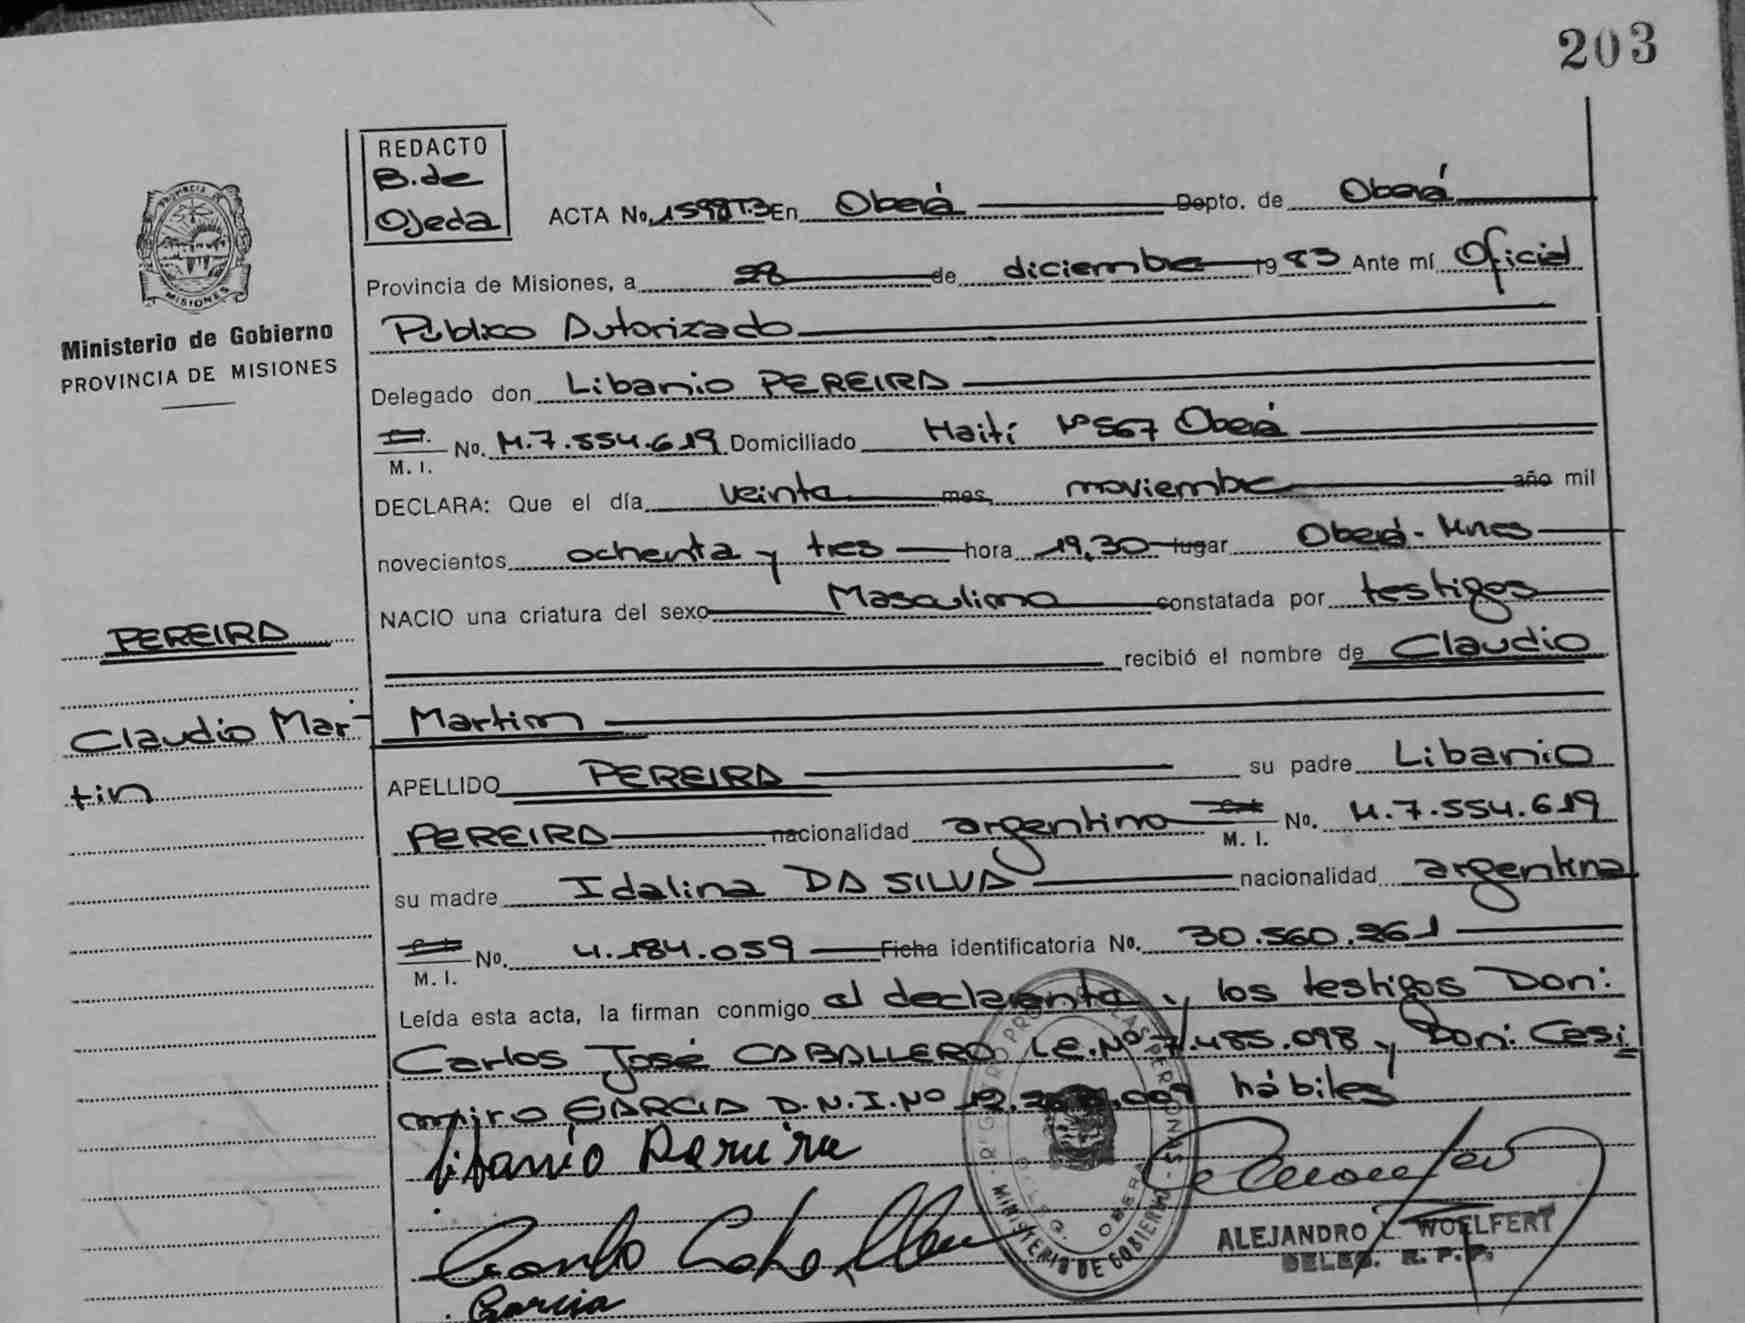 203
REDACTO
B. de
Ojeda
ACTA No. 1598 T.3 En Oberá Depto. de Oberá
Provincia de Misiones, a 28 de diciembre 1983 Ante mí Oficial
Público Autorizado
PROVINCIA DE
MISIONES
Ministerio de Gobierno
PROVINCIA DE MISIONES
Delegado don Libanio PEREIRA
M. I. No. M.7.554.619 Domiciliado Haití Nº 567 Oberá
DECLARA: Que el día veinte mes noviembre año mil
novecientos ochenta y tres hora 19,30 lugar Oberá - Mnes
NACIO una criatura del sexo Masculino constatada por testigos
recibió el nombre de Claudio
Martin
PEREIRA
Claudio Mar-
tin
APELLIDO PEREIRA su padre Libanio
PEREIRA nacionalidad argentino M. I. No. M.7.554.619
su madre Idalina DA SILVA nacionalidad argentina
M. I. No. 4.184.059 Ficha identificatoria No. 30.560.261
Leída esta acta, la firman conmigo el declarante y los testigos Don:
Carlos José CABALLERO L.E. Nº 7.485.098 y Don: Casi
miro GARCIA D.N.I. Nº hábiles
Libanio Pereira
MINISTERIO DE GOBIERNO
OBERA
ALEJANDRO L. WOELFERT
DELEG. R. P. P.
Garcia